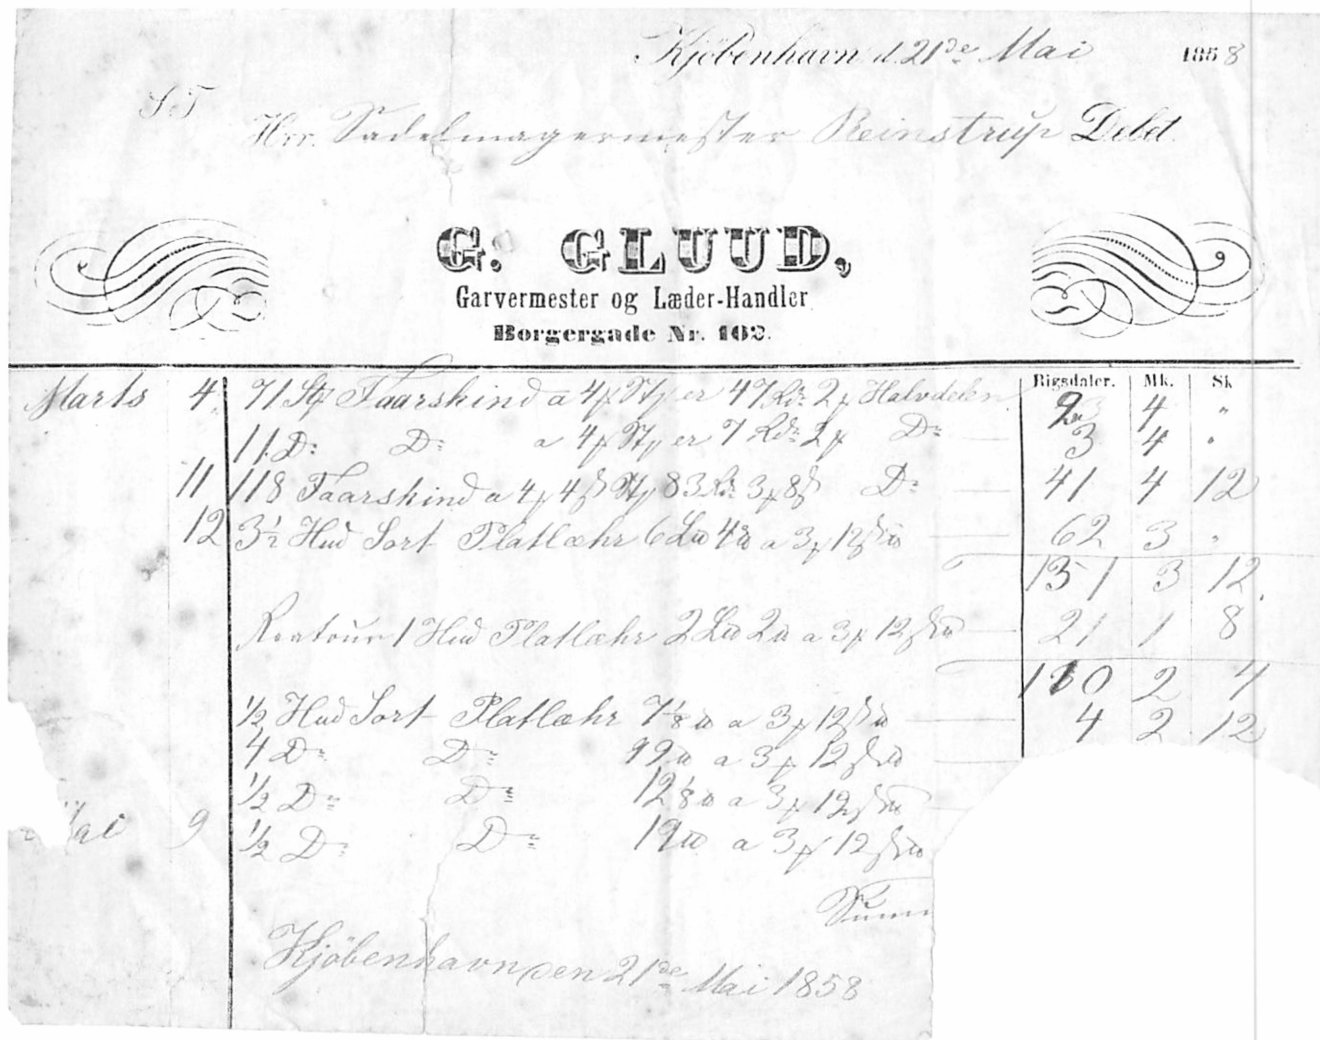 Kjöbenhavn d. 21de Mai 1858
S. T.
Hrr. Sadelmagermester Reinstrup Debet
G. GLUUD,
Garvermester og Læder-Handler
Borgergade Nr. 162.
Rigsdaler. Mk. Sk
Marts 4. 71 Faarskind a 4 er 47 Rd. 2 Halvdelen 23 4 "
11 Do Do a 4 er 7 Rd. 2 Do 3 4 "
11 118 Faarskind a 4 4 83 Rd. 3 8 Do 41 4 12
12 3½ Hud Sort Platlæhr 6 4 a 3 12 62 3 "
131 3 12
Retour 1 Hud Platlæhr 2 2 a 3 12 21 1 8
110 2 4
½ Hud Sort Platlæhr 7⅛ a 3 12 4 2 12
4 Do Do 99 a 3 12
½ Do Do 12⅛ a 3 12
Mai 9 ½ Do Do 19 a 3 12
Summ
Kjöbenhavn den 21de Mai 1858